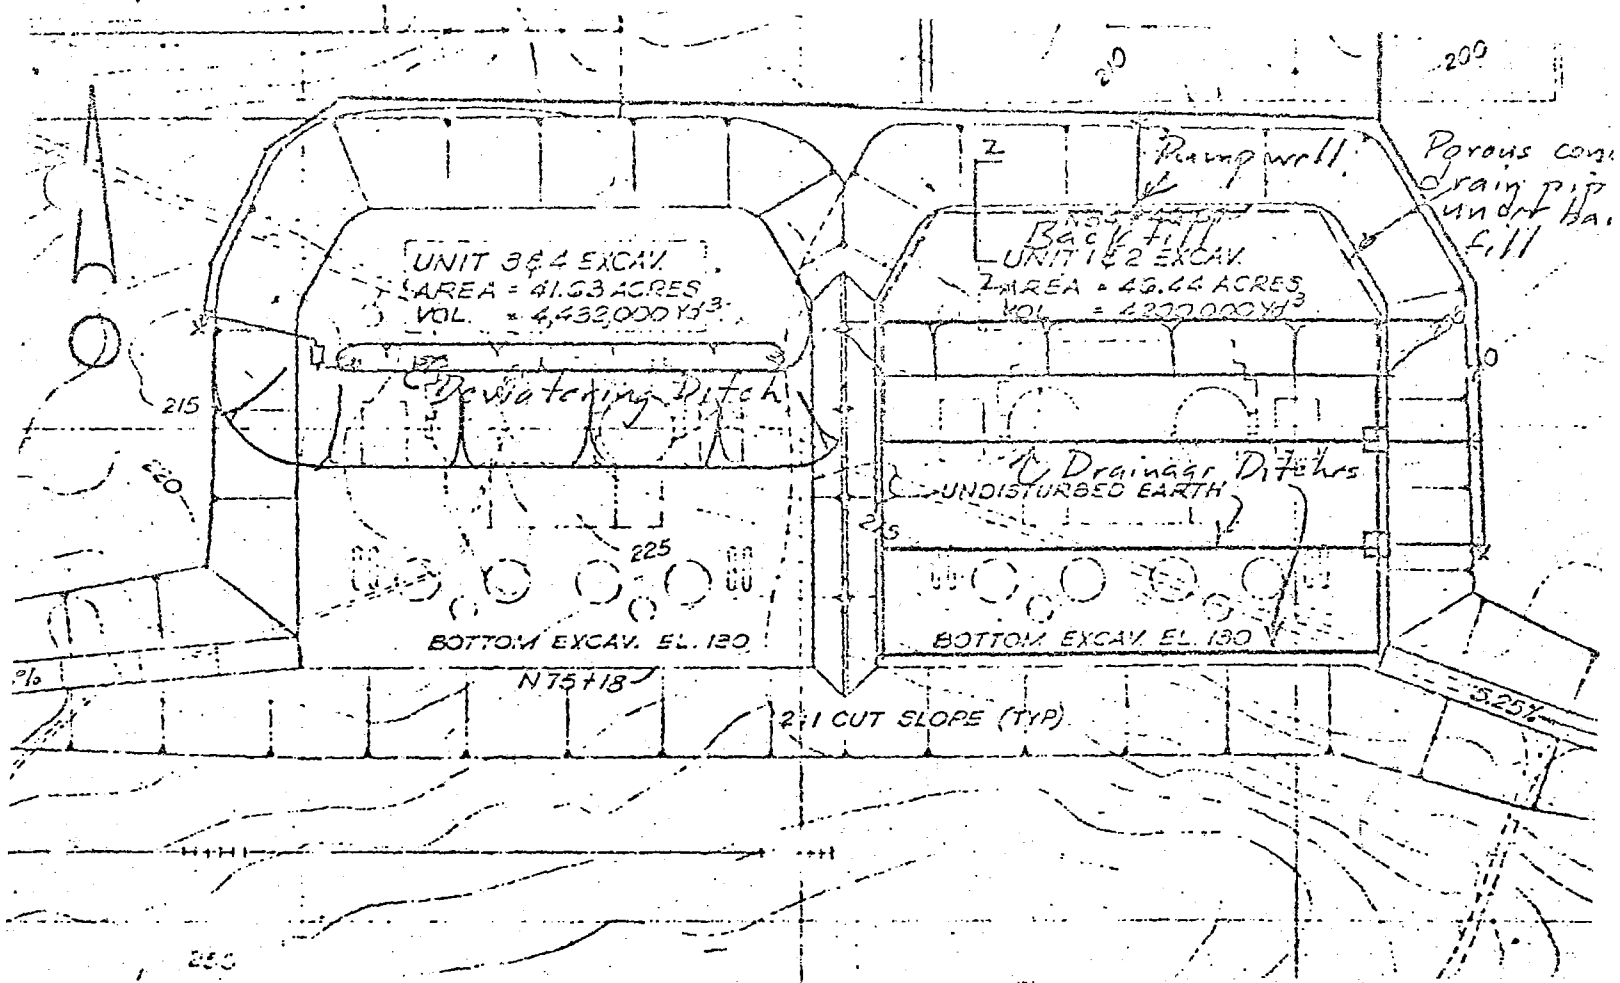 210
200
Z
Pumpwell
Porous conc
drain pip
under ba
fill
Backfill
UNIT 3&4 EXCAV.
AREA = 41.63 ACRES
VOL. = 4,432,000 Yd³
UNIT 1&2 EXCAV.
Z
AREA = 46.44 ACRES
VOL. = 4200000Yd³
Dewatering Ditch
215
220
℄ Drainage Ditches
UNDISTURBED EARTH
215
225
BOTTOM EXCAV. EL. 130
BOTTOM EXCAV. EL. 130
%
N75+18
5.25%
2:1 CUT SLOPE (TYP)
250